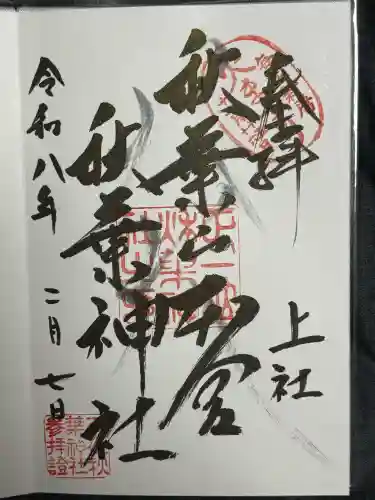 奉拝
上社
秋葉山本宮
秋葉神社
令和八年
二月七日